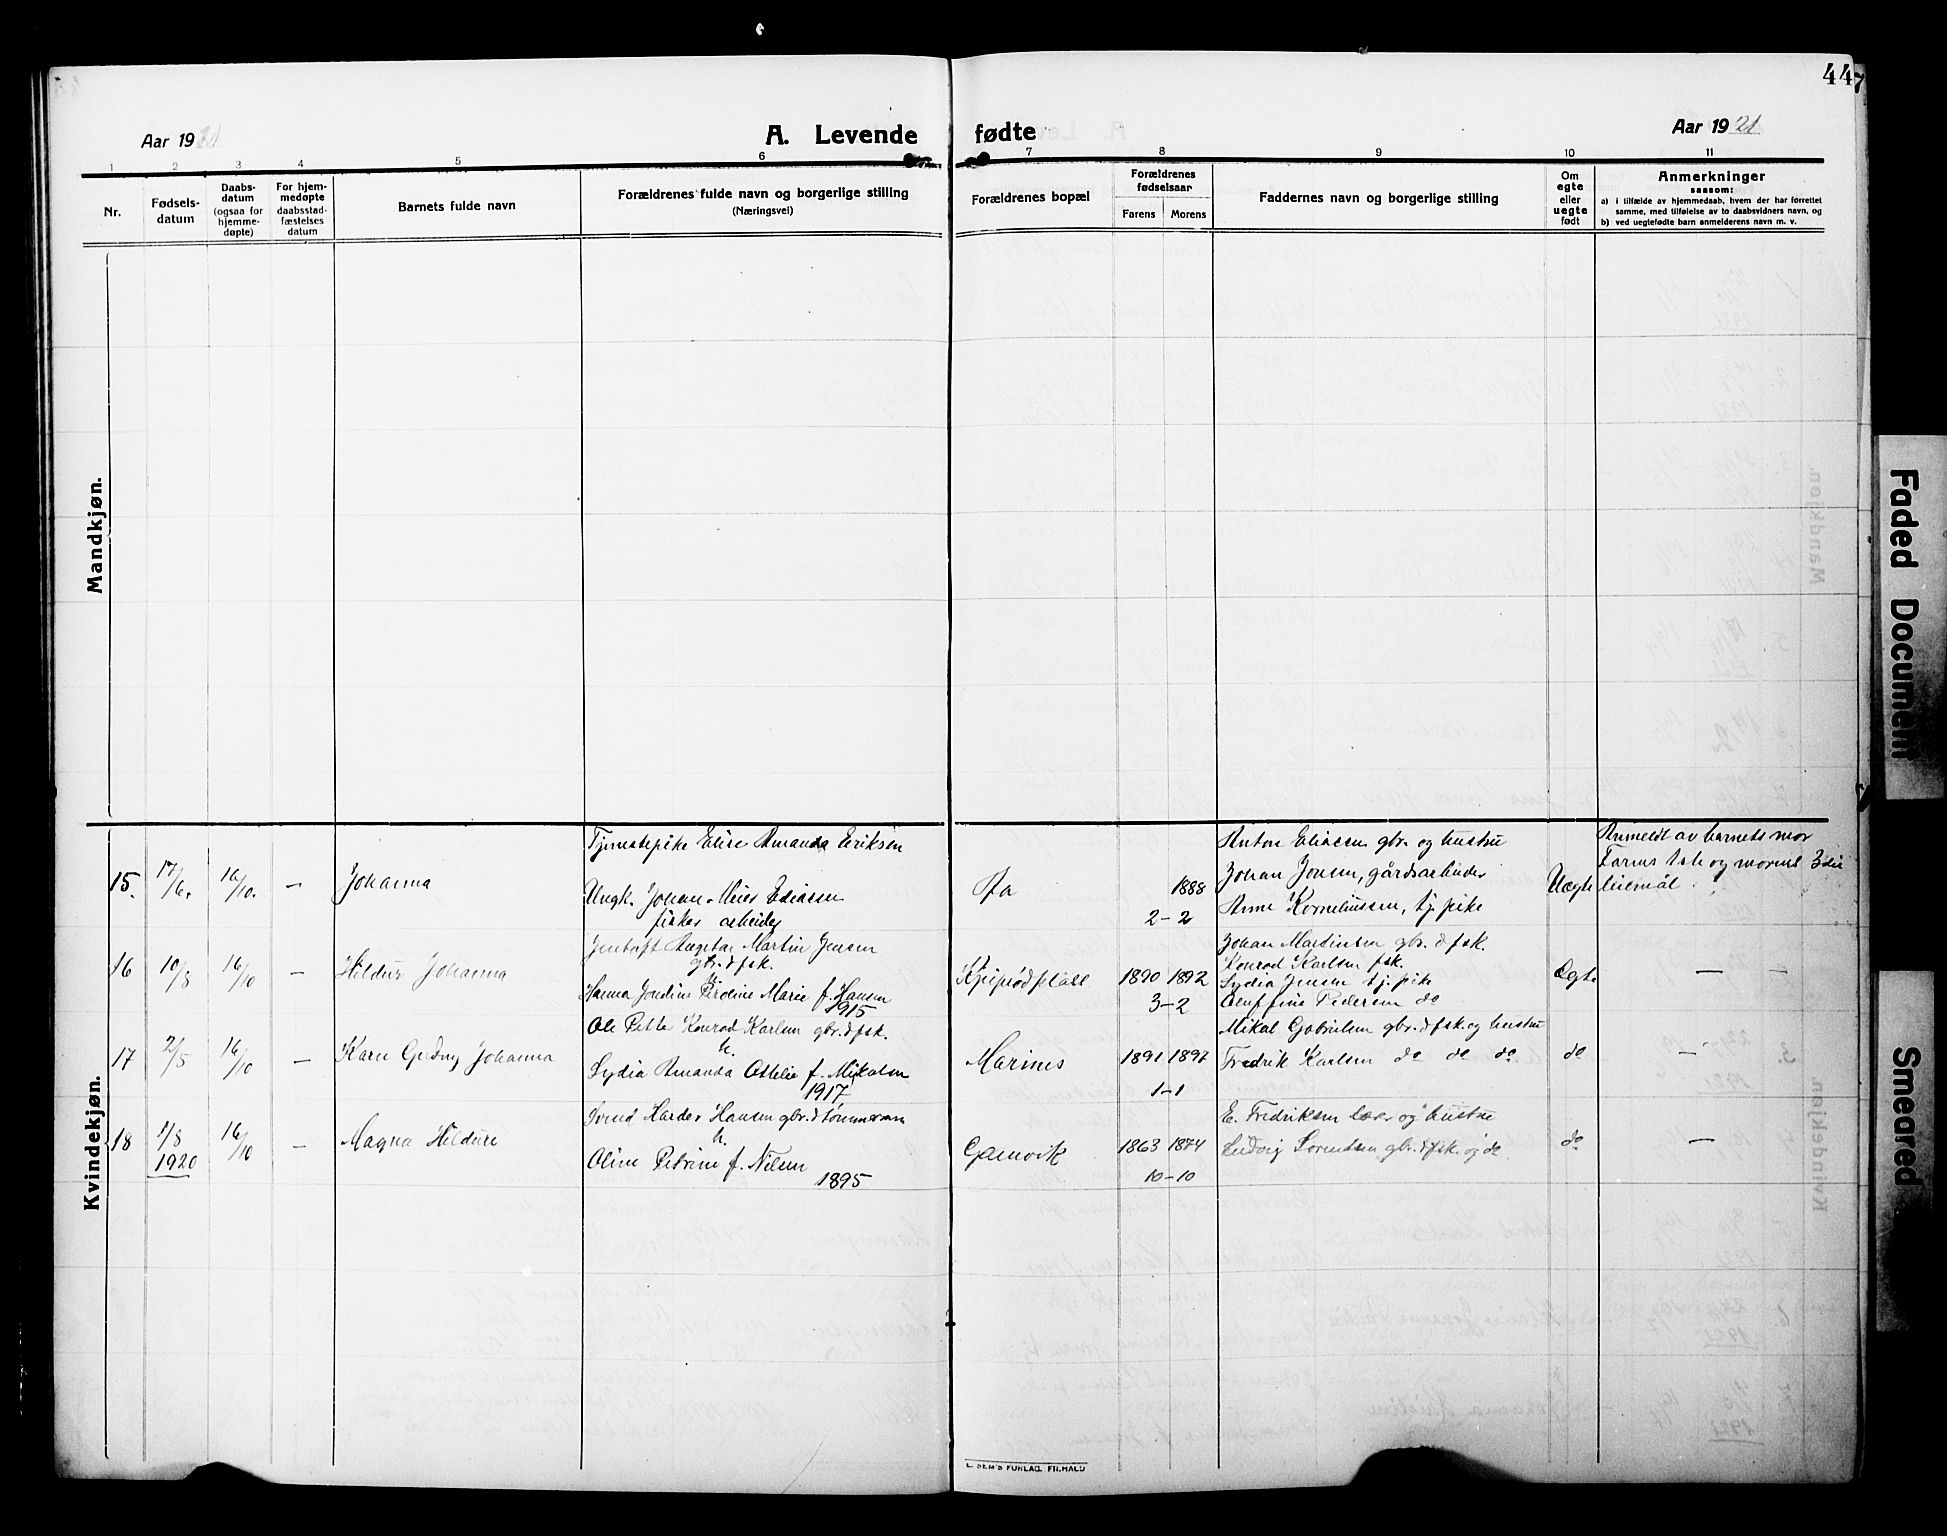 44
Aar 19
A. Levende fødte
Aar 1921
1 2 3 4 5 6 7 8 9 10 11
Nr.
Fødsels-
datum
Daabs-
datum
(ogsaa for
hjemme-
døpte)
For hjem-
medøpte
daabsstad-
fæstelses
datum
Barnets fulde navn
Forældrenes fulde navn og borgerlige stilling
(Næringsvei)
Forældrenes bopæl
Forældrenes
fødselsaar
Farens Morens
Faddernes navn og borgerlige stilling
Om
egte
eller
uegte
født
Anmerkninger
saasom:
a) i tilfælde av hjemmedaab, hvem der har forrettet
samme, med tilføielse av to daabsvidners navn, og
b) ved uegtefødte barn anmelderens navn m. v.
Mandkjøn.
Kvindekjøn.
15. 17/6. 16/10. — Johanna
Tjenestepike Elise Amanda Eriksen
Ungk. Johan Meier Eliassen
fisker arbeider
1888
2-2
Anton Eliassen gbr. og hustru
Johan Jensen, gårdsarbeider
Anne Korneliussen, tj. pike
Uegte
Anmeldt av barnets mor
Farens 1ste og morens 3die
leiermål.
16 10/8 16/10 — Hildur Johanna
Martin Jensen
gbr. & fsk.
h.
Hanna Marie f. Hansen
1915
1890 1892
3-2
Johan Martinsen gbr. & fsk.
Konrad Karlsen fsk.
Lydia Jensen tj. pike
Pedersen do
Egte
— —
17 2/5 16/10 — Johanna
Ole Konrad Karlsen gbr. & fsk.
h.
Lydia Amanda f. Mikalsen
1917
Marines
1891 1897
1-1
Mikal Gabrielsen gbr. & fsk. og hustru
Fredrik Karlsen do do do
do
—
18 1/8 16/10 — Magna Hildure
1920
Hansen gbr. & tømmerm
h.
Oline Petrine f. Nilsen
1895
Gamvik
1863 1874
10-10
E. Fredriksen lærer og hustru
Ludvig Sørensen gbr. & fsk. og do.
do
—
E. SEM'S FORLAG. FR.HALD
Faded Document
Smeared